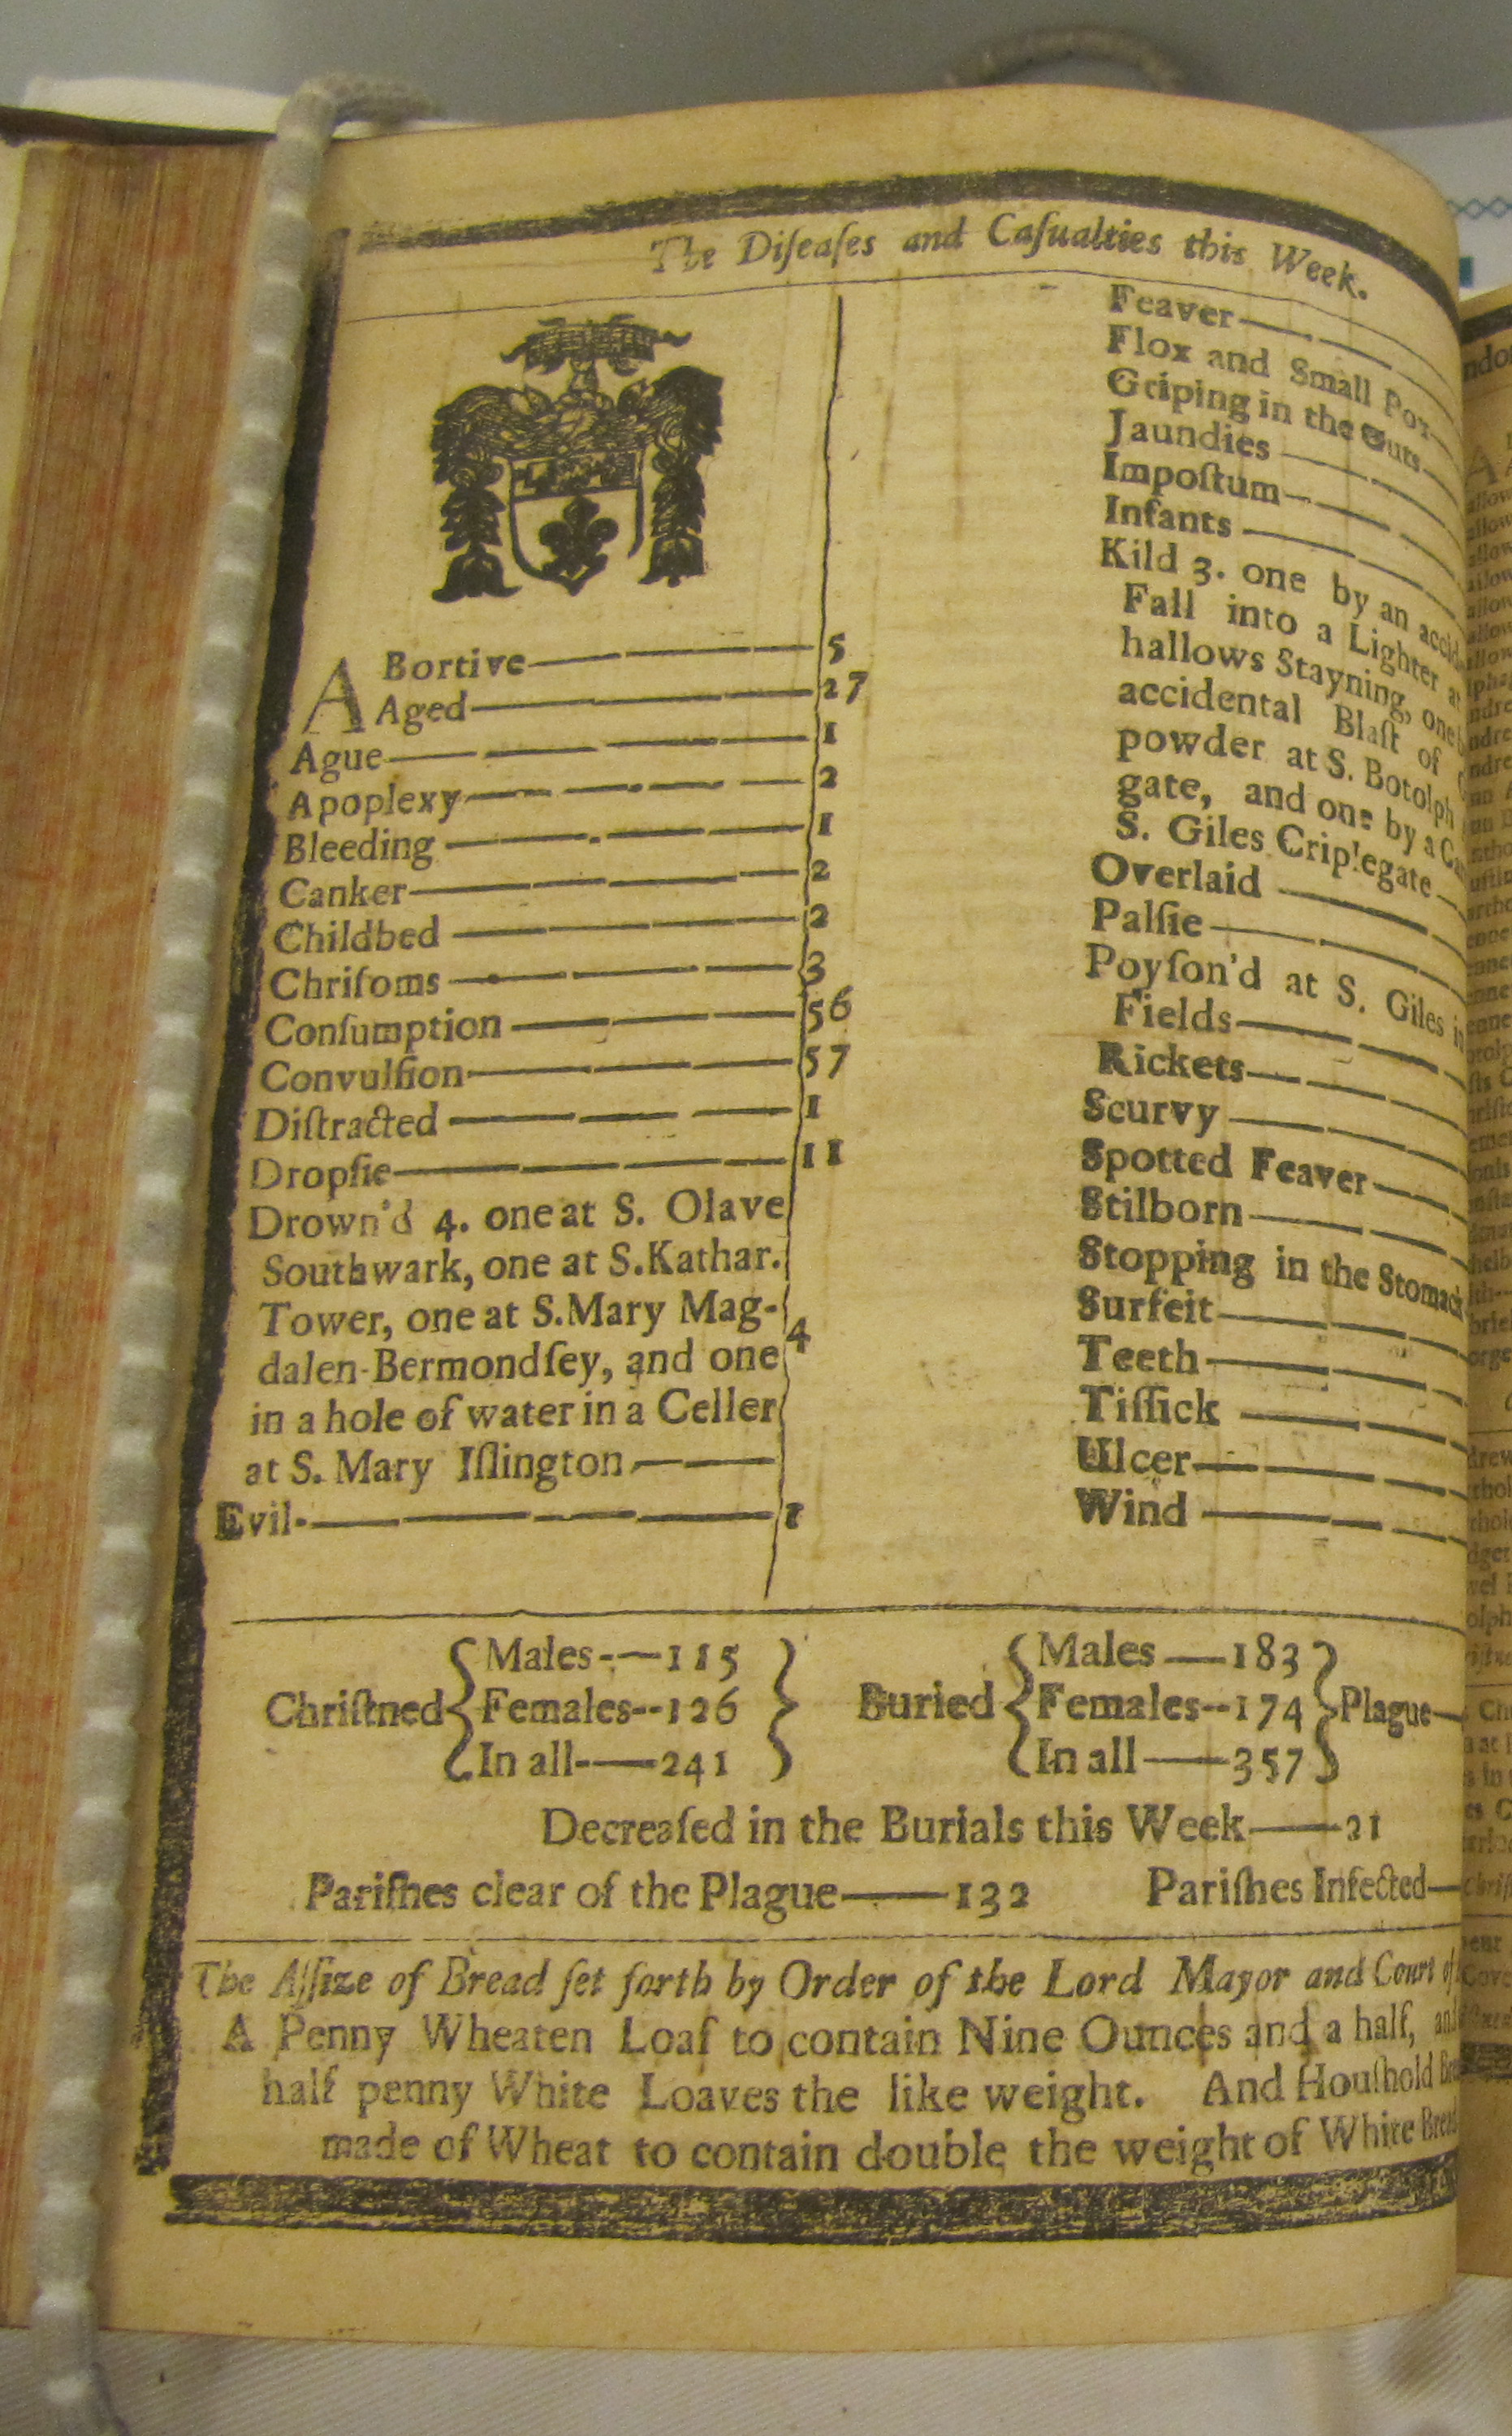 The Diſeaſes and Caſualties this Week.
ABortive 5
Aged 27
Ague 1
Apoplexy 2
Bleeding 1
Canker 2
Childbed 2
Chriſoms 3
Conſumption 56
Convulſion 57
Diſtracted 1
Dropſie 11
Drown'd 4. one at S. Olave
Southwark, one at S. Kathar.
Tower, one at S. Mary Mag-
dalen-Bermondſey, and one 4
in a hole of water in a Celler
at S. Mary Iſlington
Evil 1
Feaver
Flox and Small Pox
Griping in the Guts
Jaundies
Impoſtum
Infants
Kild 3. one by an
Fall into a Lighter
hallows Stayning, one
accidental Blaſt of
powder at S. Botolph
gate, and one by a
S. Giles Criplegate
Overlaid
Palſie
Poyſon'd at S. Giles
Fields
Rickets
Scurvy
Spotted Feaver
Stilborn
Stopping in the Stomach
Surfeit
Teeth
Tiſſick
Ulcer
Wind
Chriſtned Males 115 Females 126 In all 241
Buried Males 183 Females 174 In all 357 Plague
Decreaſed in the Burials this Week 21
Pariſhes clear of the Plague 132 Pariſhes Infected
The Aſſize of Bread ſet forth by Order of the Lord Mayor and Court of
A Penny Wheaten Loaf to contain Nine Ounces and a half, and
half penny White Loaves the like weight. And Houſhold
made of Wheat to contain double the weight of White Bread